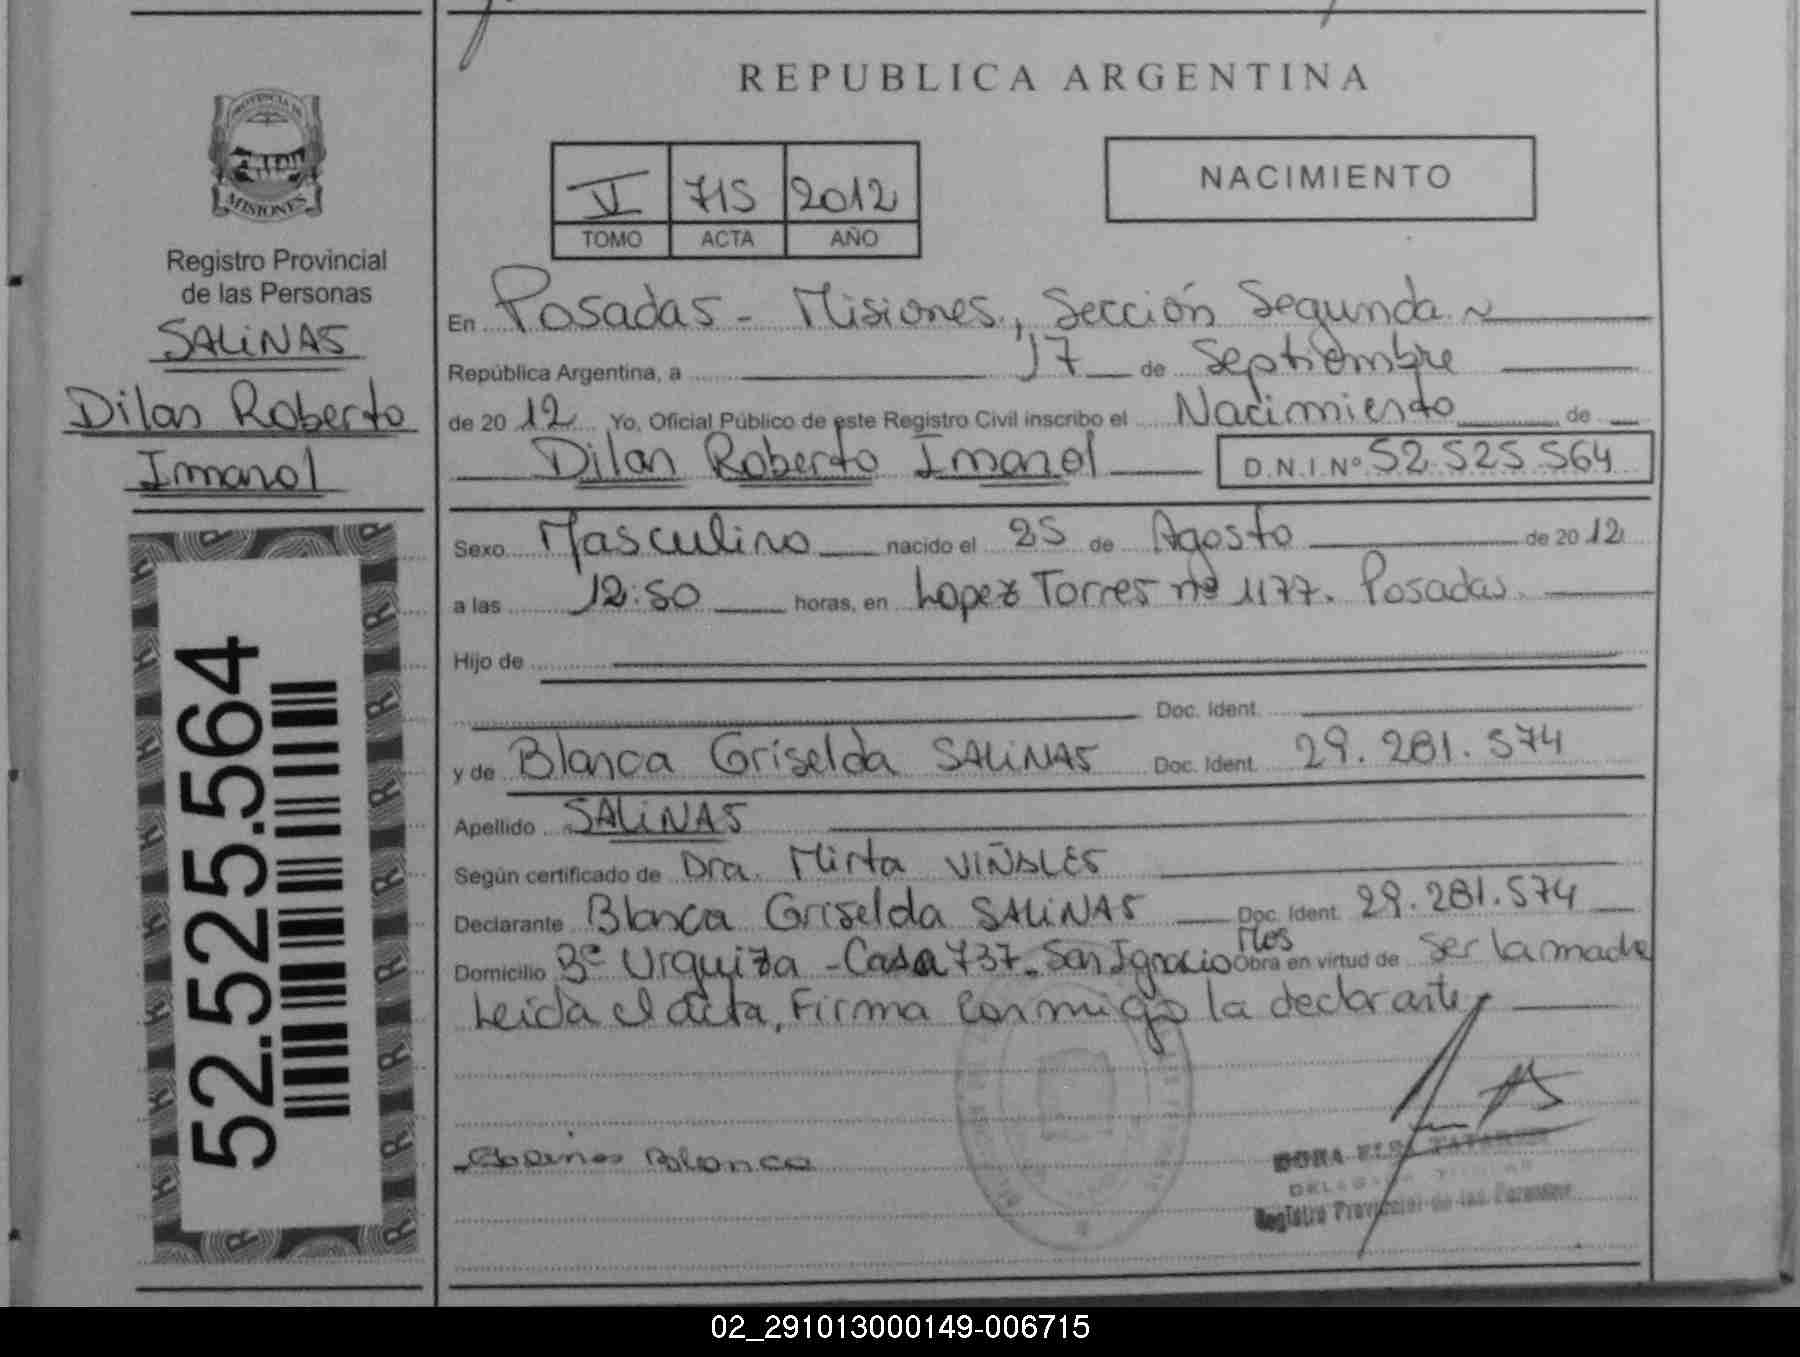 REPUBLICA ARGENTINA
PROVINCIA DE
MISIONES
Registro Provincial
de las Personas
SALINAS
Dilan Roberto
Imanol
52.525.564
VI 715 2012
TOMO ACTA AÑO
NACIMIENTO
En Posadas - Misiones, Sección Segunda
República Argentina, a 17 de Septiembre
de 2012 Yo, Oficial Público de este Registro Civil inscribo el Nacimiento de
Dilan Roberto Imanol D.N.I.Nº 52.525.564
Sexo Masculino nacido el 25 de Agosto de 2012
a las 12:50 horas, en Lopez Torres nº 1177. Posadas.
Hijo de
Doc. Ident.
y de Blanca Griselda SALINAS Doc. Ident. 29.281.574
Apellido SALINAS
Según certificado de Dra. Mirta VIÑALES
Declarante Blanca Griselda SALINAS Doc. Ident. 29.281.574
Domicilio Bº Urquiza - Casa 737. San Ignacio Mes Obra en virtud de Ser la madre
Leída el acta, Firma Conmigo la declarante
Blanca
DORA
Registro Provincial de las Personas
02_291013000149-006715